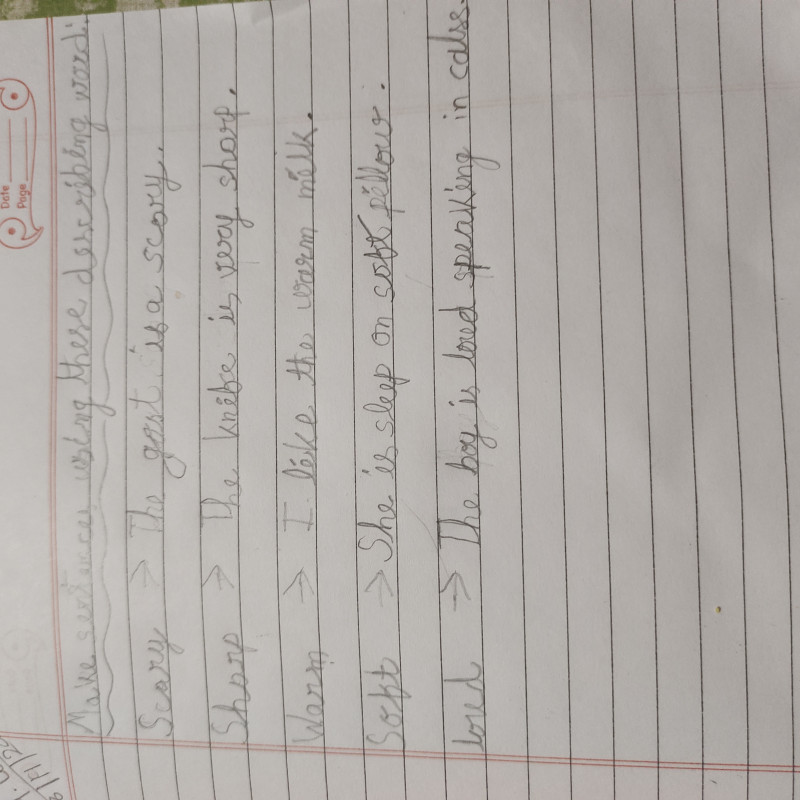 Date
Page
Make sentences using these describing word:
Scary → The gost is a scary.
Sharp → The knife is very sharp.
Warm → I like the warm milk.
Soft → She is sleep on soft pillow.
loud → The boy is loud speaking in calss.